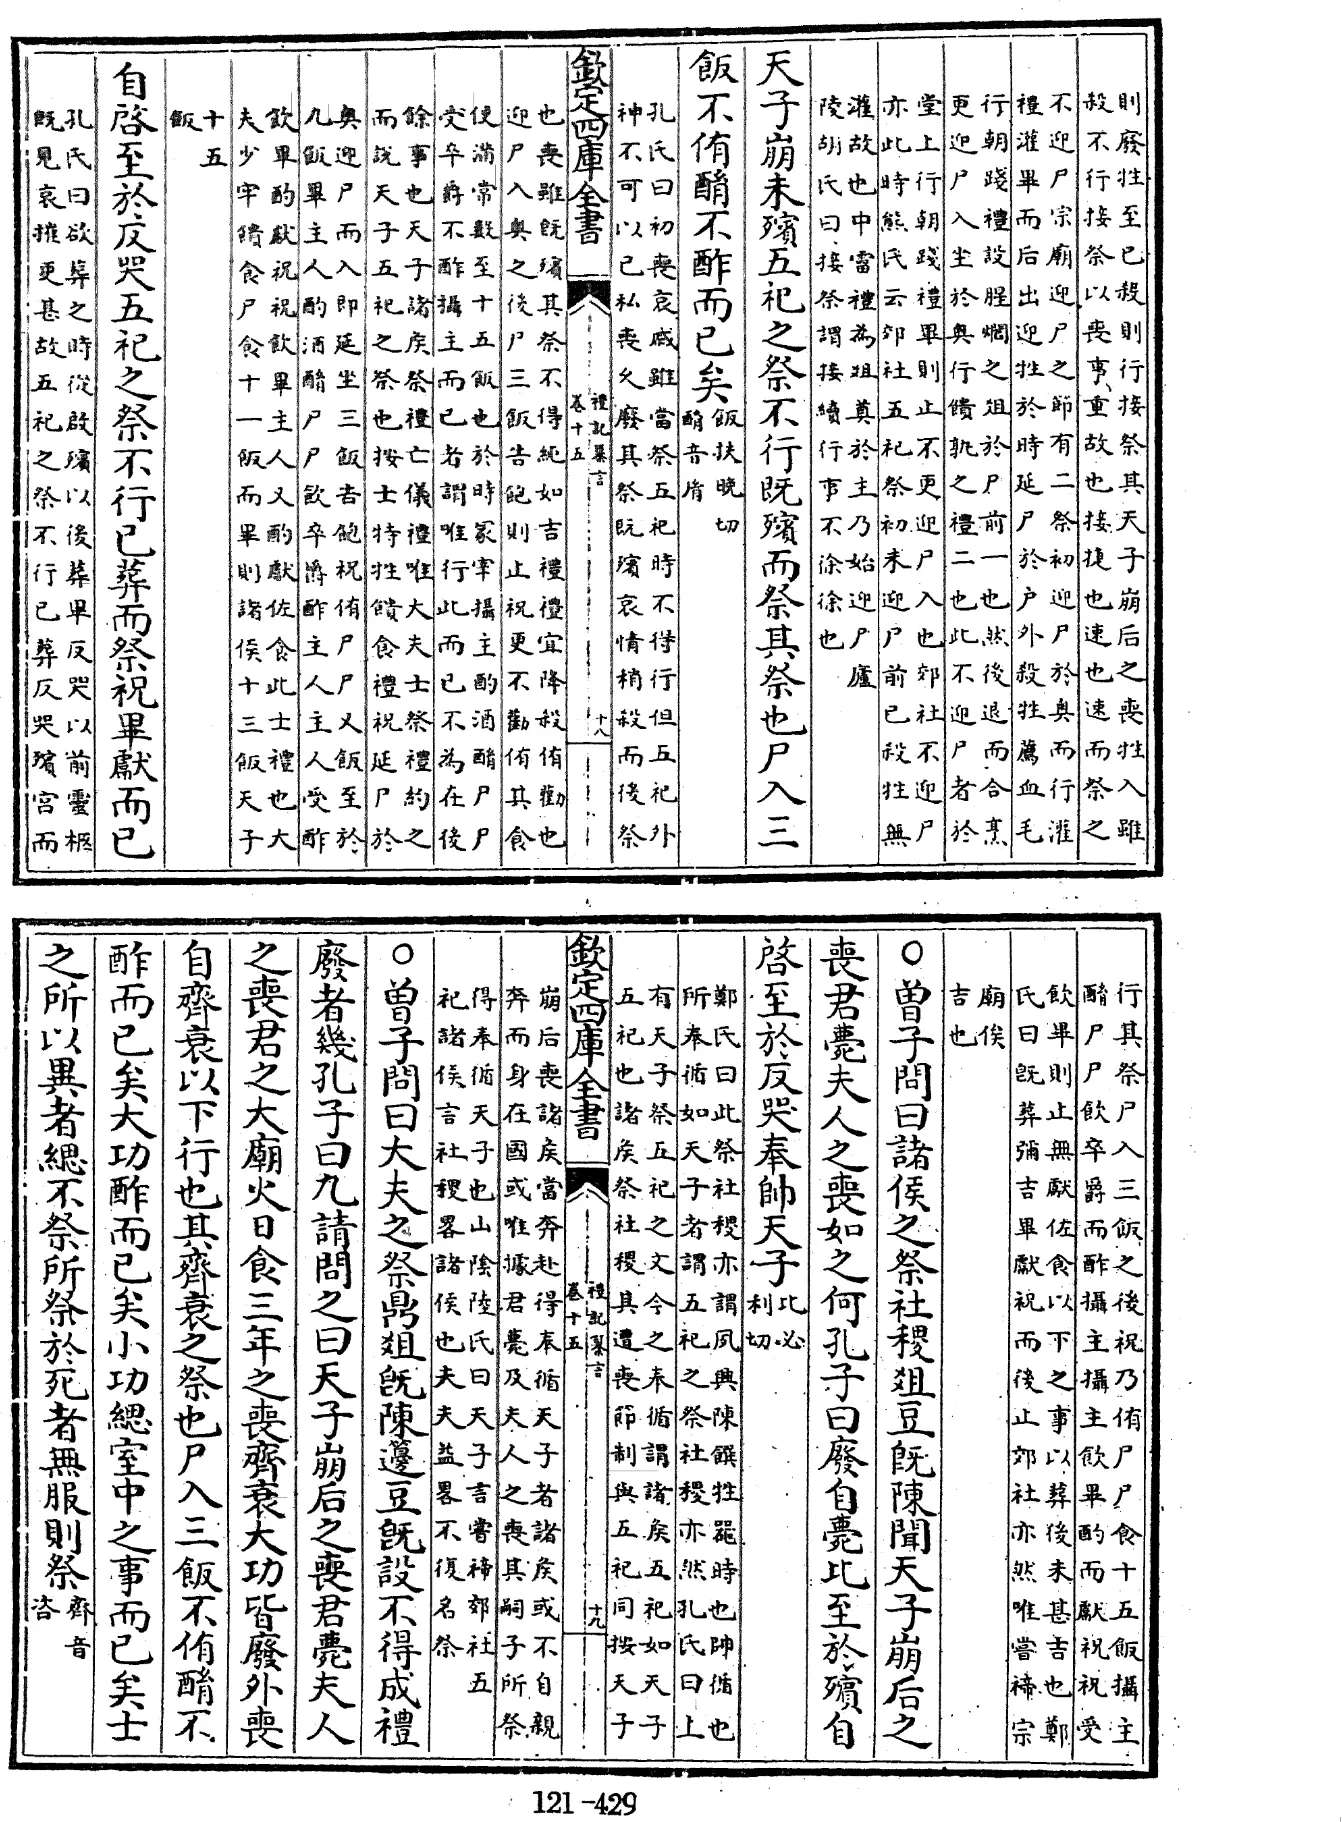 則廢牲至已殺則行接祭其天子崩后之喪牲入雖
殺不行接祭以喪事重故也接捷也速也速而祭之
不迎尸宗廟迎尸之節有二祭初迎尸於奥而行灌
禮灌畢而后出迎牲於時延尸於户外殺牲薦血毛
行朝踐禮設腥爓之俎於尸前一也然後退而合烹
更迎尸入坐於奥行饋孰之禮二也此不迎尸者於
堂上行朝踐禮畢則止不更迎尸入也郊社不迎尸
亦此時熊氏云郊社五祀祭初未迎尸前已殺牲無
灌故也中霤禮為俎奠於主乃始迎尸廬
陵胡氏曰接祭謂接續行事不徐徐也
天子崩未殯五祀之祭不行既殯而祭其祭也尸入三
飯不侑酳不酢而已矣 飯扶晚切
酳音胤
孔氏曰初喪哀戚雖當祭五祀時不得行但五祀外
神不可以已私喪久廢其祭既殯哀情稍殺而後祭
欽定四庫全書
禮記纂言
卷十五
十八
也喪雖既殯其祭不得純如吉禮禮宜降殺侑勸也
迎尸入奥之後尸三飯告飽則止祝更不勸侑其食
使滿常數至十五飯也於時冡宰攝主酌酒酳尸尸
受卒爵不酢攝主而已者謂唯行此而已不為在後
餘事也天子諸侯祭禮亡儀禮唯大夫士祭禮約之
而說天子五祀之祭也按士特牲饋食禮祝延尸於
奥迎尸而入即延坐三飯告飽祝侑尸尸又飯至於
九飯畢主人酌酒酳尸尸飲卒爵酢主人主人受酢
飲畢酌獻祝祝飲畢主人又酌獻佐食此士禮也大
夫少牢饋食尸食十一飯而畢則諸侯十三飯天子
十五
飯
自啓至於反哭五祀之祭不行已葬而祭祝畢獻而已
孔氏曰欲葬之時從啟殯以後葬畢反哭以前靈柩
既見哀摧更甚故五祀之祭不行已葬反哭殯宮而
行其祭尸入三飯之後祝乃侑尸尸食十五飯攝主
酳尸尸飲卒爵而酢攝主攝主飲畢酌而獻祝祝受
飲畢則止無獻佐食以下之事以葬後未甚吉也鄭
氏曰既葬彌吉畢獻祝而後止郊社亦然唯嘗禘宗
廟俟
吉也
○曽子問曰諸侯之祭社稷俎豆既陳聞天子崩后之
喪君薨夫人之喪如之何孔子曰廢自薨比至於殯自
啓至於反哭奉帥天子 比必
利切
鄭氏曰此祭社稷亦謂夙興陳饌牲器時也帥循也
所奉循如天子者謂五祀之祭社稷亦然孔氏曰上
有天子祭五祀之文今之奉循謂諸侯五祀如天子
五祀也諸侯祭社稷其遭喪節制與五祀同按天子
欽定四庫全書
禮記纂言
卷十五
十九
崩后喪諸侯當奔赴得奉循天子者諸侯或不自親
奔而身在國或唯據君薨及夫人之喪其嗣子所祭
得奉循天子也山陰陸氏曰天子言嘗禘郊社五
祀諸侯言社稷畧諸侯也夫夫益畧不復名祭
○曽子問曰大夫之祭鼎俎既陳籩豆既設不得成禮
廢者幾孔子曰九請問之曰天子崩后之喪君薨夫人
之喪君之大廟火日食三年之喪齊衰大功皆廢外喪
自齊衰以下行也其齊衰之祭也尸入三飯不侑酳不
酢而已矣大功酢而已矣小功緦室中之事而已矣士
之所以異者緦不祭所祭於死者無服則祭 齊音
咨
121-429